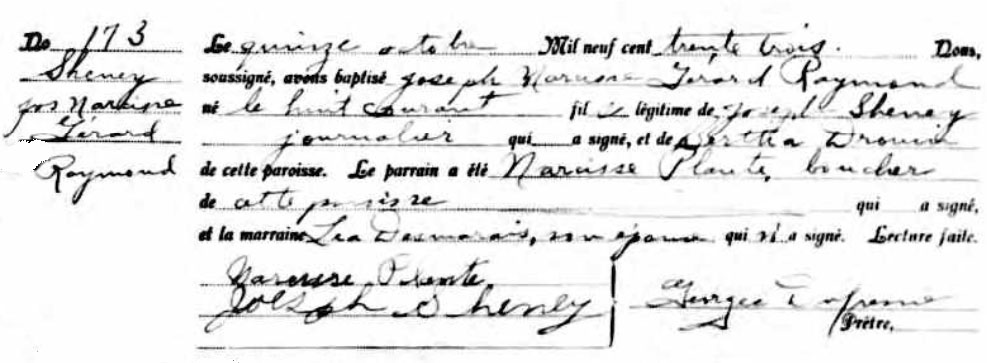 No 173
Sheney
Jos Narcisse
Gérard
Raymond
Le quinze octobre Mil neuf cent trente trois. Nous,
soussigné, avons baptisé Joseph Narcisse Gérard Raymond
né le huit courant fils légitime de Joseph Sheney
journalier qui a signé, et de Bertha Drouin
de cette paroisse. Le parrain a été Narcisse Plante, boucher
de cette paroisse qui a signé,
et la marraine Léa Desmarais, son épouse qui n'a signé. Lecture faite.
Narcisse Plante
Joesph Sheney
Georges Dufresne
Prêtre.